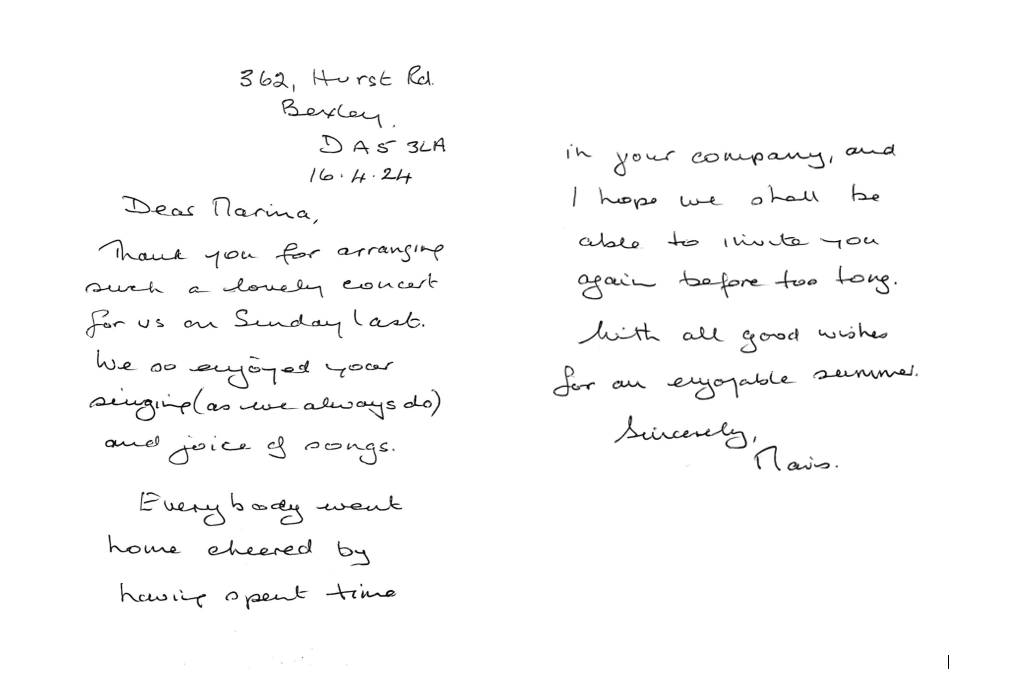 362, Hurst Rd.
Bexley.
DA5 3LA
16.4.24
Dear Marina,
Thank you for arranging
such a lovely concert
for us on Sunday last.
We so enjoyed your
singing (as we always do)
and joice of songs.
Everybody went
home cheered by
having spent time
in your company, and
I hope we shall be
able to invite you
again before too long.
With all good wishes
for an enjoyable summer.
Sincerely,
Mavis.